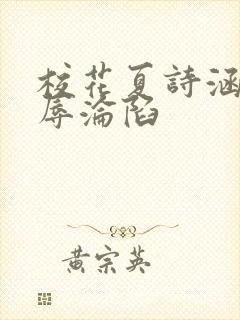 校花夏詩涵
辱淪陷
黃宗英